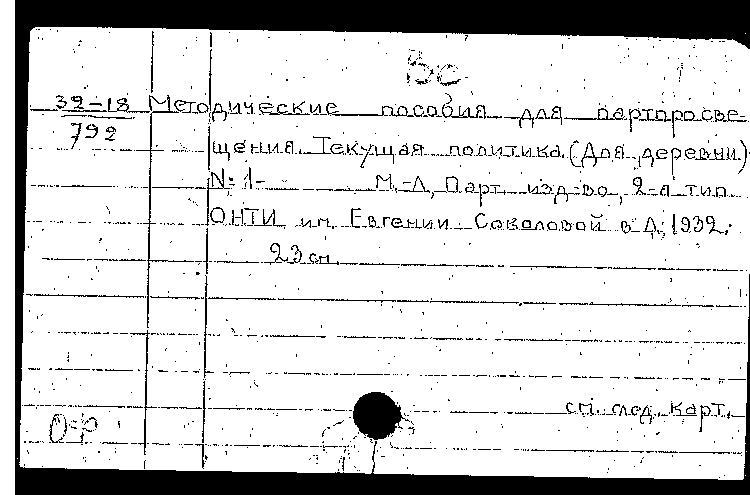 Вс
32-18 Методические пособия для партпросве-
792
щения. Текущая политика. (Для деревни)
№ 1- М.-Л., Парт. изд-во, 2-я тип.
ОНТИ им. Евгении Соколовой в Л., 1932.
23 см.
см. след. карт.
О-р